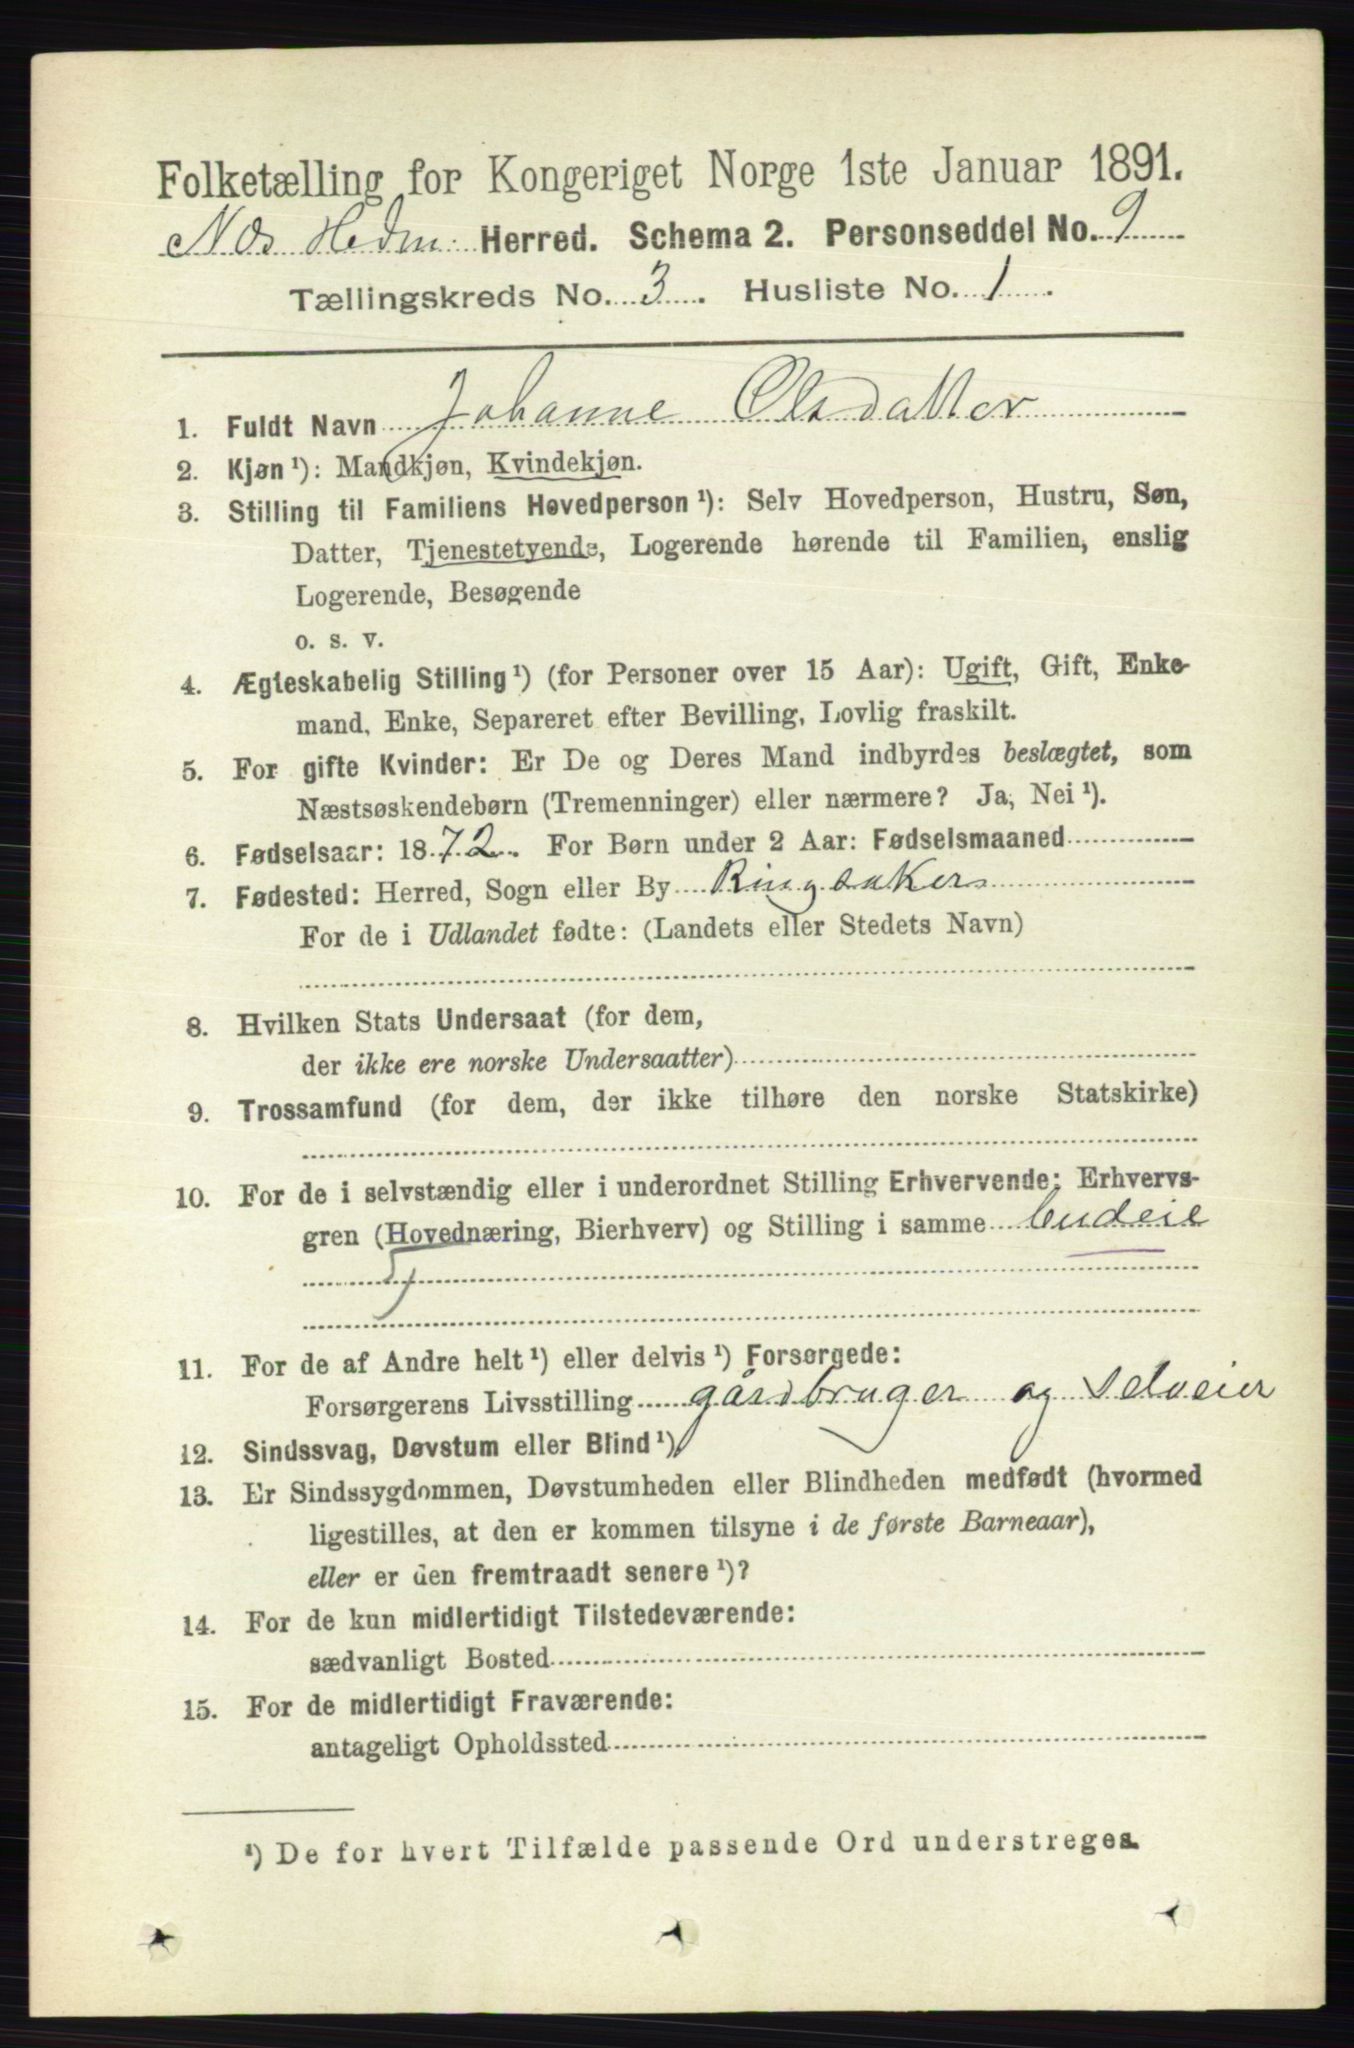 Folketælling for Kongeriget Norge 1ste Januar 1891.
Næs Hedm. Herred. Schema 2. Personseddel No. 9
Tællingskreds No. 3. Husliste No. 1.
1. Fuldt Navn Johanne Olsdatter
2. Kjøn ¹): Mandkjøn, Kvindekjøn.
3. Stilling til Familiens Hovedperson ¹): Selv Hovedperson, Hustru, Søn,
Datter, Tjenestetyende, Logerende hørende til Familien, enslig
Logerende, Besøgende
o. s. v.
4. Ægteskabelig Stilling ¹) (for Personer over 15 Aar): Ugift, Gift, Enke-
mand, Enke, Separeret efter Bevilling, Lovlig fraskilt.
5. For gifte Kvinder: Er De og Deres Mand indbyrdes beslægtet, som
Næstsøskendebørn (Tremenninger) eller nærmere? Ja, Nei ¹).
6. Fødselsaar: 1872. For Børn under 2 Aar: Fødselsmaaned
7. Fødested: Herred, Sogn eller By Ringsaker
For de i Udlandet fødte: (Landets eller Stedets Navn)
8. Hvilken Stats Undersaat (for dem,
der ikke ere norske Undersaatter)
9. Trossamfund (for dem, der ikke tilhøre den norske Statskirke)
10. For de i selvstændig eller i underordnet Stilling Erhvervende: Erhvervs-
gren (Hovednæring, Bierhverv) og Stilling i samme budeie
11. For de af Andre helt ¹) eller delvis ¹) Forsørgede:
Forsørgerens Livsstilling gårdbruger og selveier
12. Sindssvag, Døvstum eller Blind ¹).
13. Er Sindssygdommen, Døvstumheden eller Blindheden medfødt (hvormed
ligestilles, at den er kommen tilsyne i de første Barneaar),
eller er den fremtraadt senere ¹)?
14. For de kun midlertidigt Tilstedeværende:
sædvanligt Bosted
15. For de midlertidigt Fraværende:
antageligt Opholdssted
¹) De for hvert Tilfælde passende Ord understreges.